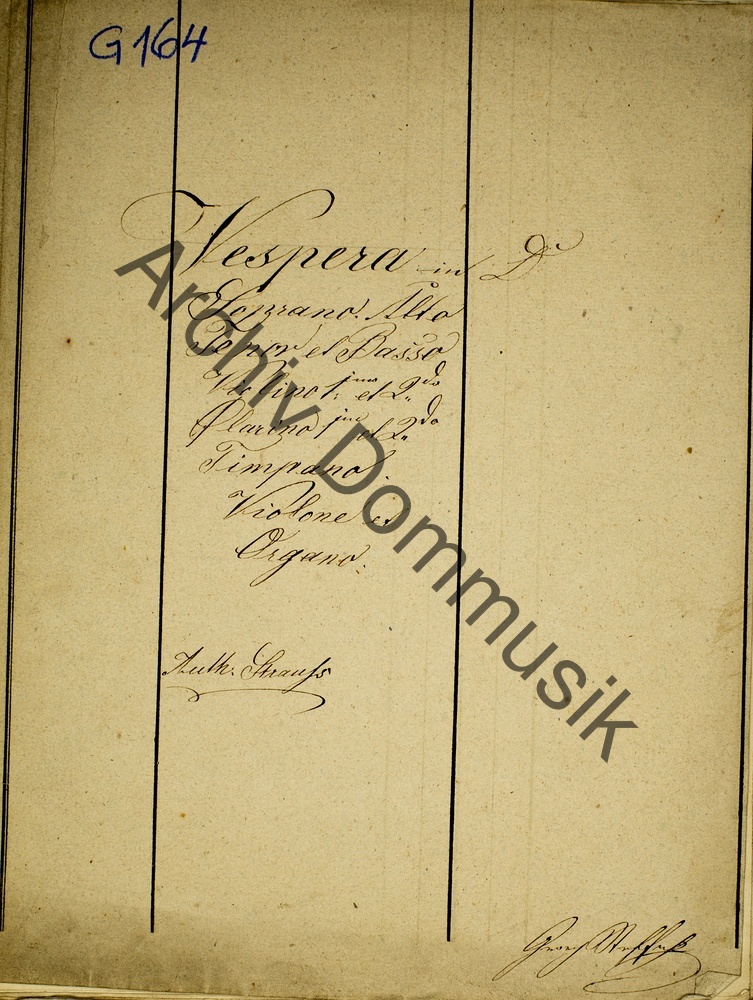 G 164
Vespera in D
Soprano. Alto
Tenor et Basso
Violino 1mo et 2do
Clarino 1mo et 2do
Timpano.
Violone et
Organo.
Auth: Strauss
Georg
Archiv Dommusik